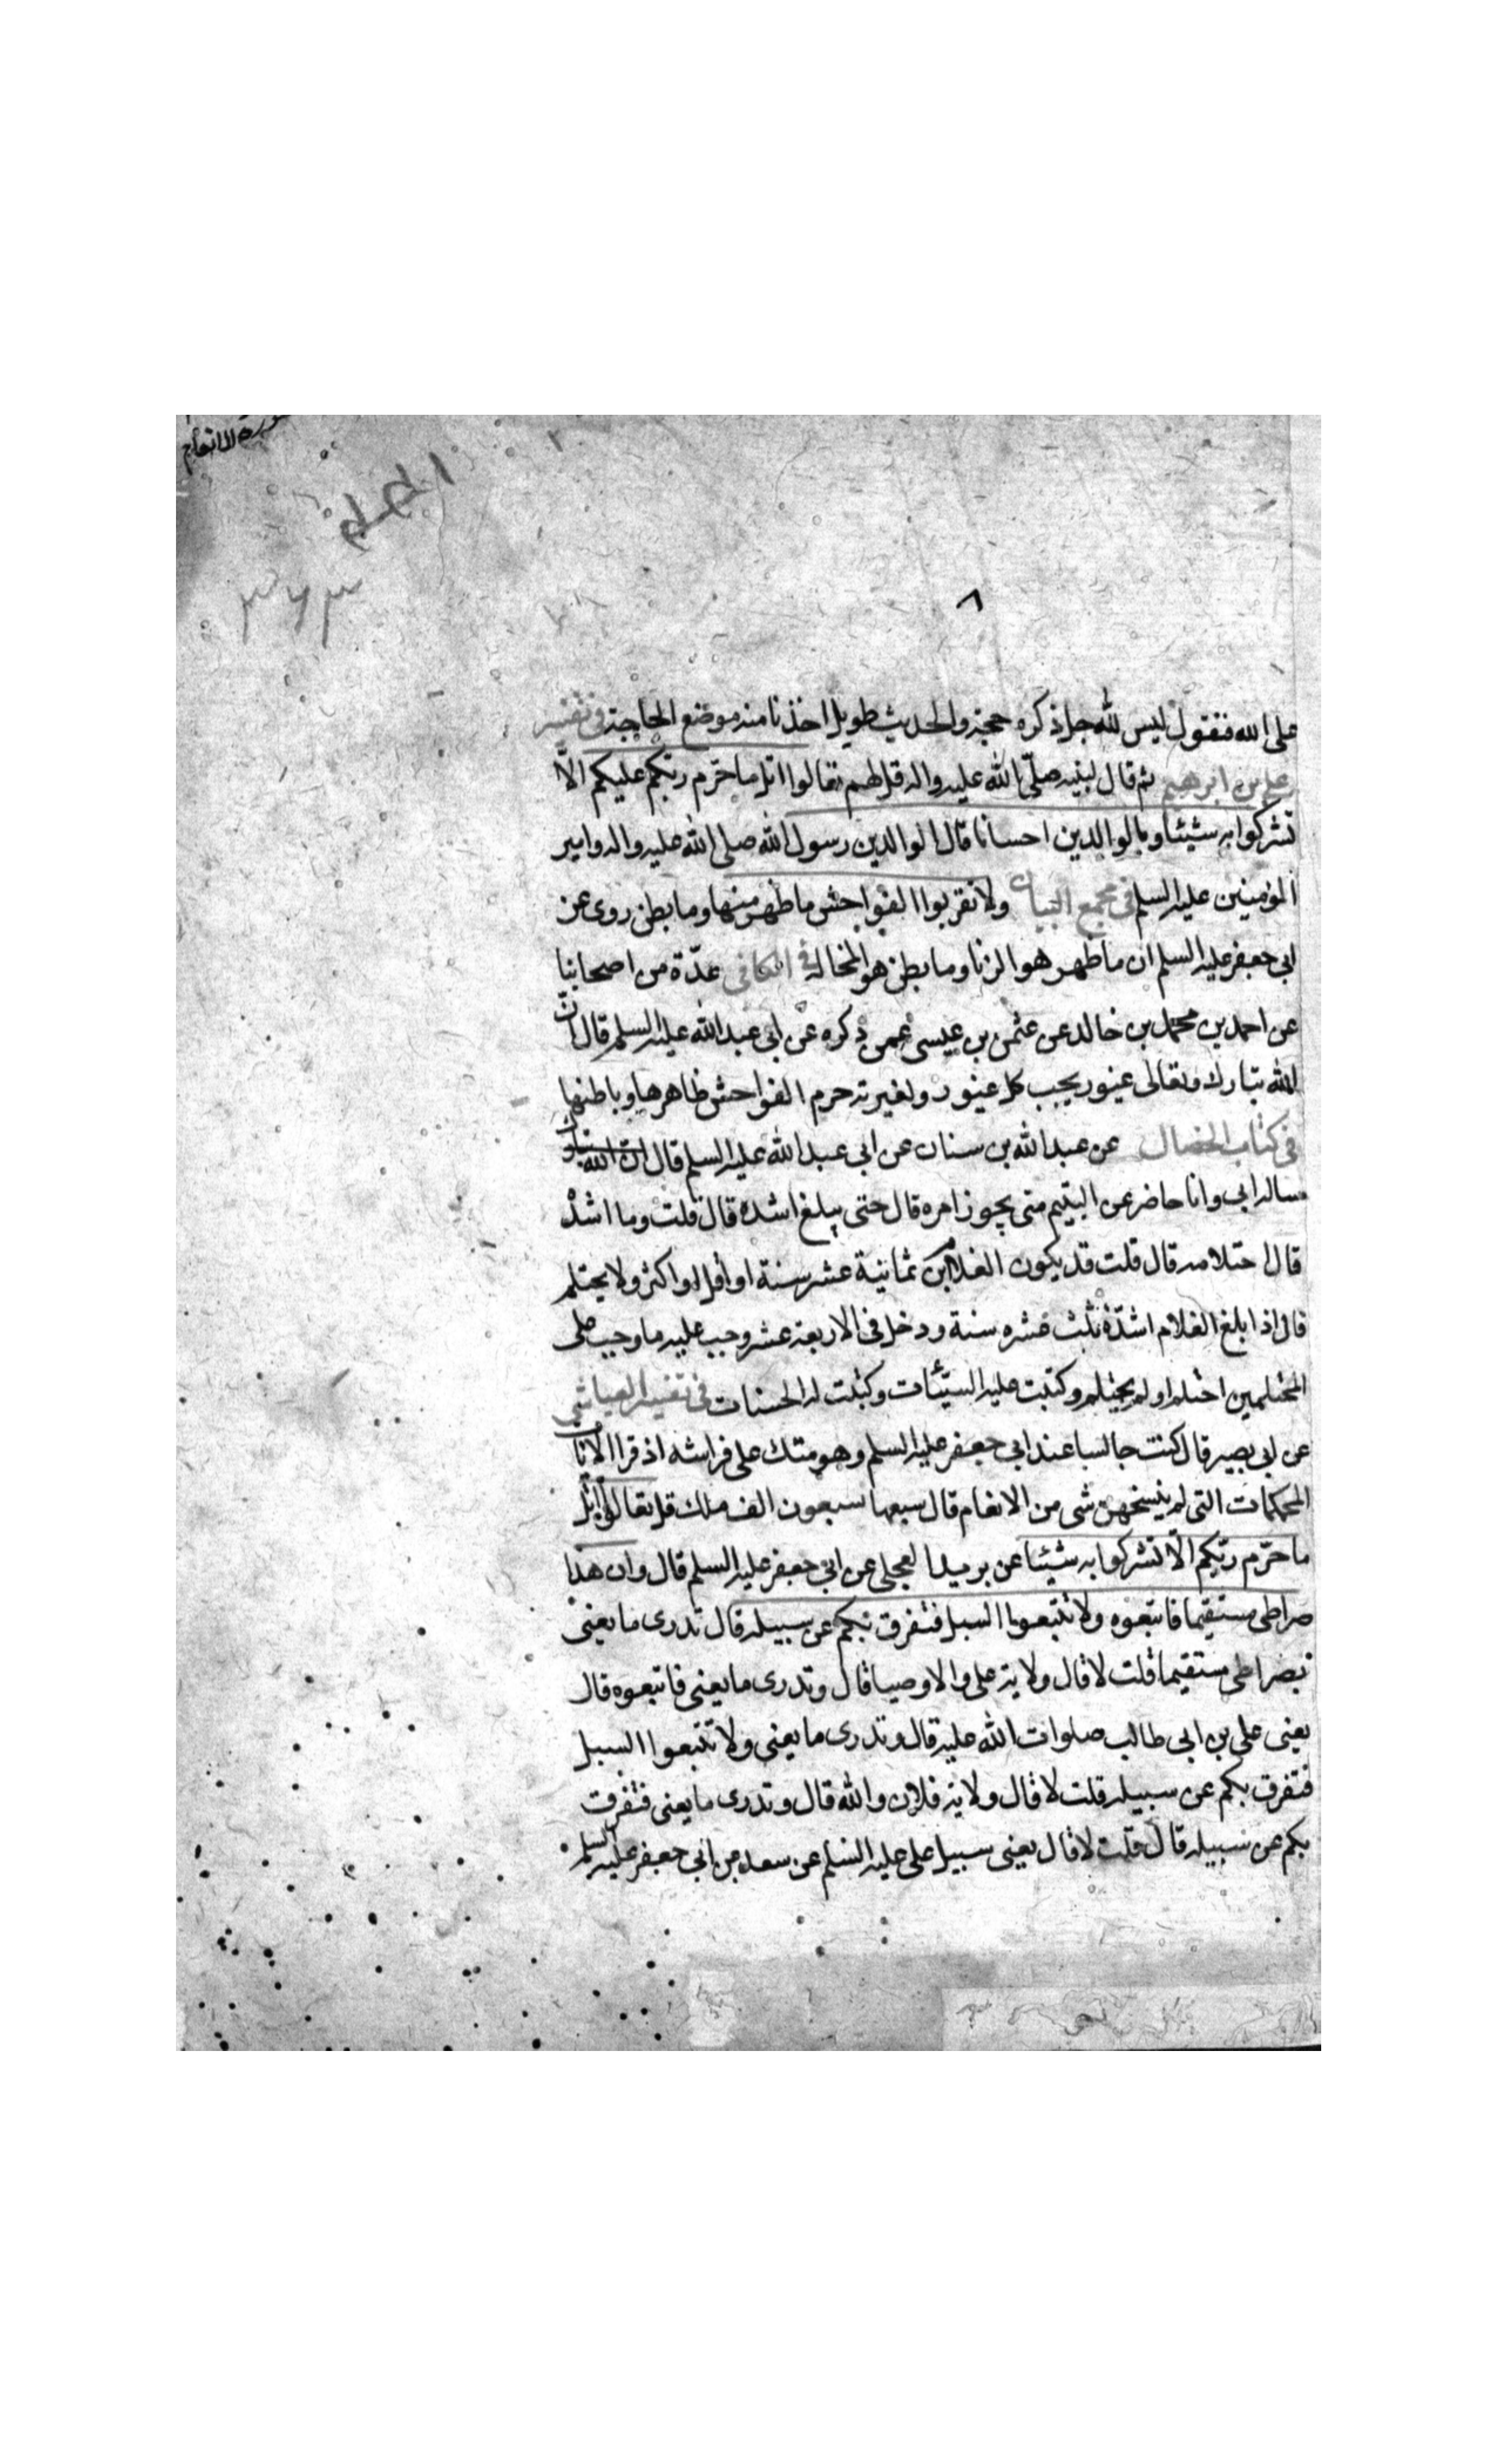 سورة الانعام
٨
على الله فنقول ليس لله جل ذكره حجة والحديث طويل اخذنا منه موضع الحاجة فى تفسير
على بن ابرهيم ثم قال لنبيه صلى الله عليه واله قل لهم تعالوا اتل ما حرّم ربكم عليكم الّا
تشركوا به شيئا وبالوالدين احسانا قال الوالدين رسول الله صلى الله عليه واله وامير
المؤمنين عليه السلم فى مجمع البيان ولا تقربوا الفواحش ما ظهر منها وما بطن روى عن
ابى جعفر عليه السلم ان ما ظهر هو الزنا وما بطن هو المخالة فى الكافى عدّة من اصحابنا
عن احمد بن محمد بن خالد عن عثمن بن عيسى عمن ذكره عن ابى عبد الله عليه السلم قال انّ
الله تبارك وتعالى غيور يحب كل غيور ولغيرته حرم الفواحش ظاهرها وباطنها
فى كتاب الخصال عن عبد الله بن سنان عن ابى عبد الله عليه السلم قال ان الله تبارك
ساله ابى وانا حاضر عن اليتيم متى يجوز امره قال حتى يبلغ اشده قال قلت وما اشدّه
قال احتلامه قال قلت قد يكون الغلام ابن ثمانية عشر سنة او اقل او اكثر ولا يحتلم
قال اذا بلغ الغلام اشدّه ثلث عشره سنة ودخل فى الاربعة عشر وجب عليه ما وجب على
المحتلمين احتلم او لم يحتلم وكتبت عليه السيّئات وكتبت له الحسنات فى تفسير العياشى
عن ابى بصير قال كنت جالسا عند ابى جعفر عليه السلم وهو متك على فراشه اذ قرا الايات
المحكمات التى لم ينسخهن شى من الانعام قال شيعها سبعون الف ملك قل تعالوا اتل
ما حرّم ربّكم الّا تشركوا به شيئا عن بريد العجلى عن ابى جعفر عليه السلم قال وان هذا
صراطى مستقيما فاتبعوه ولا تتبعوا السبل فتفرق بكم عن سبيله قال تدرى ما يعنى
بصراطى مستقيما قلت لا قال ولاية على والاوصيا قال وتدرى ما يعنى فاتبعوه قال
يعنى على بن ابى طالب صلوات الله عليه قال وتدرى ما يعنى ولا تتبعوا السبل
فتفرق بكم عن سبيله قلت لا قال ولاية فلان والله قال وتدرى ما يعنى فتفرق
بكم عن سبيله قال قلت لا قال يعنى سبيل على عليه السلم عن سعد عن ابى جعفر عليه السلم